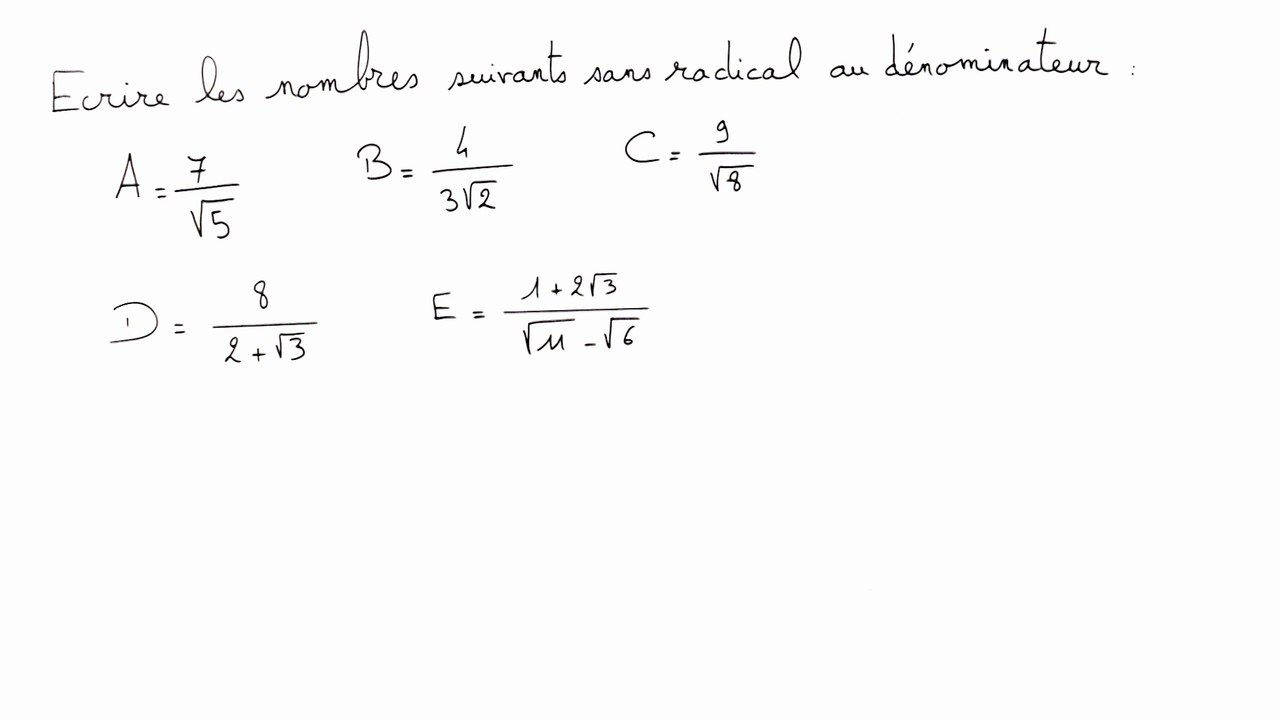 Ecrire les nombres suivants sans radical au dénominateur :
A = 7/√5 B = 4/(3√2) C = 9/√8
D = 8/(2+√3) E = (1+2√3)/(√11-√6)